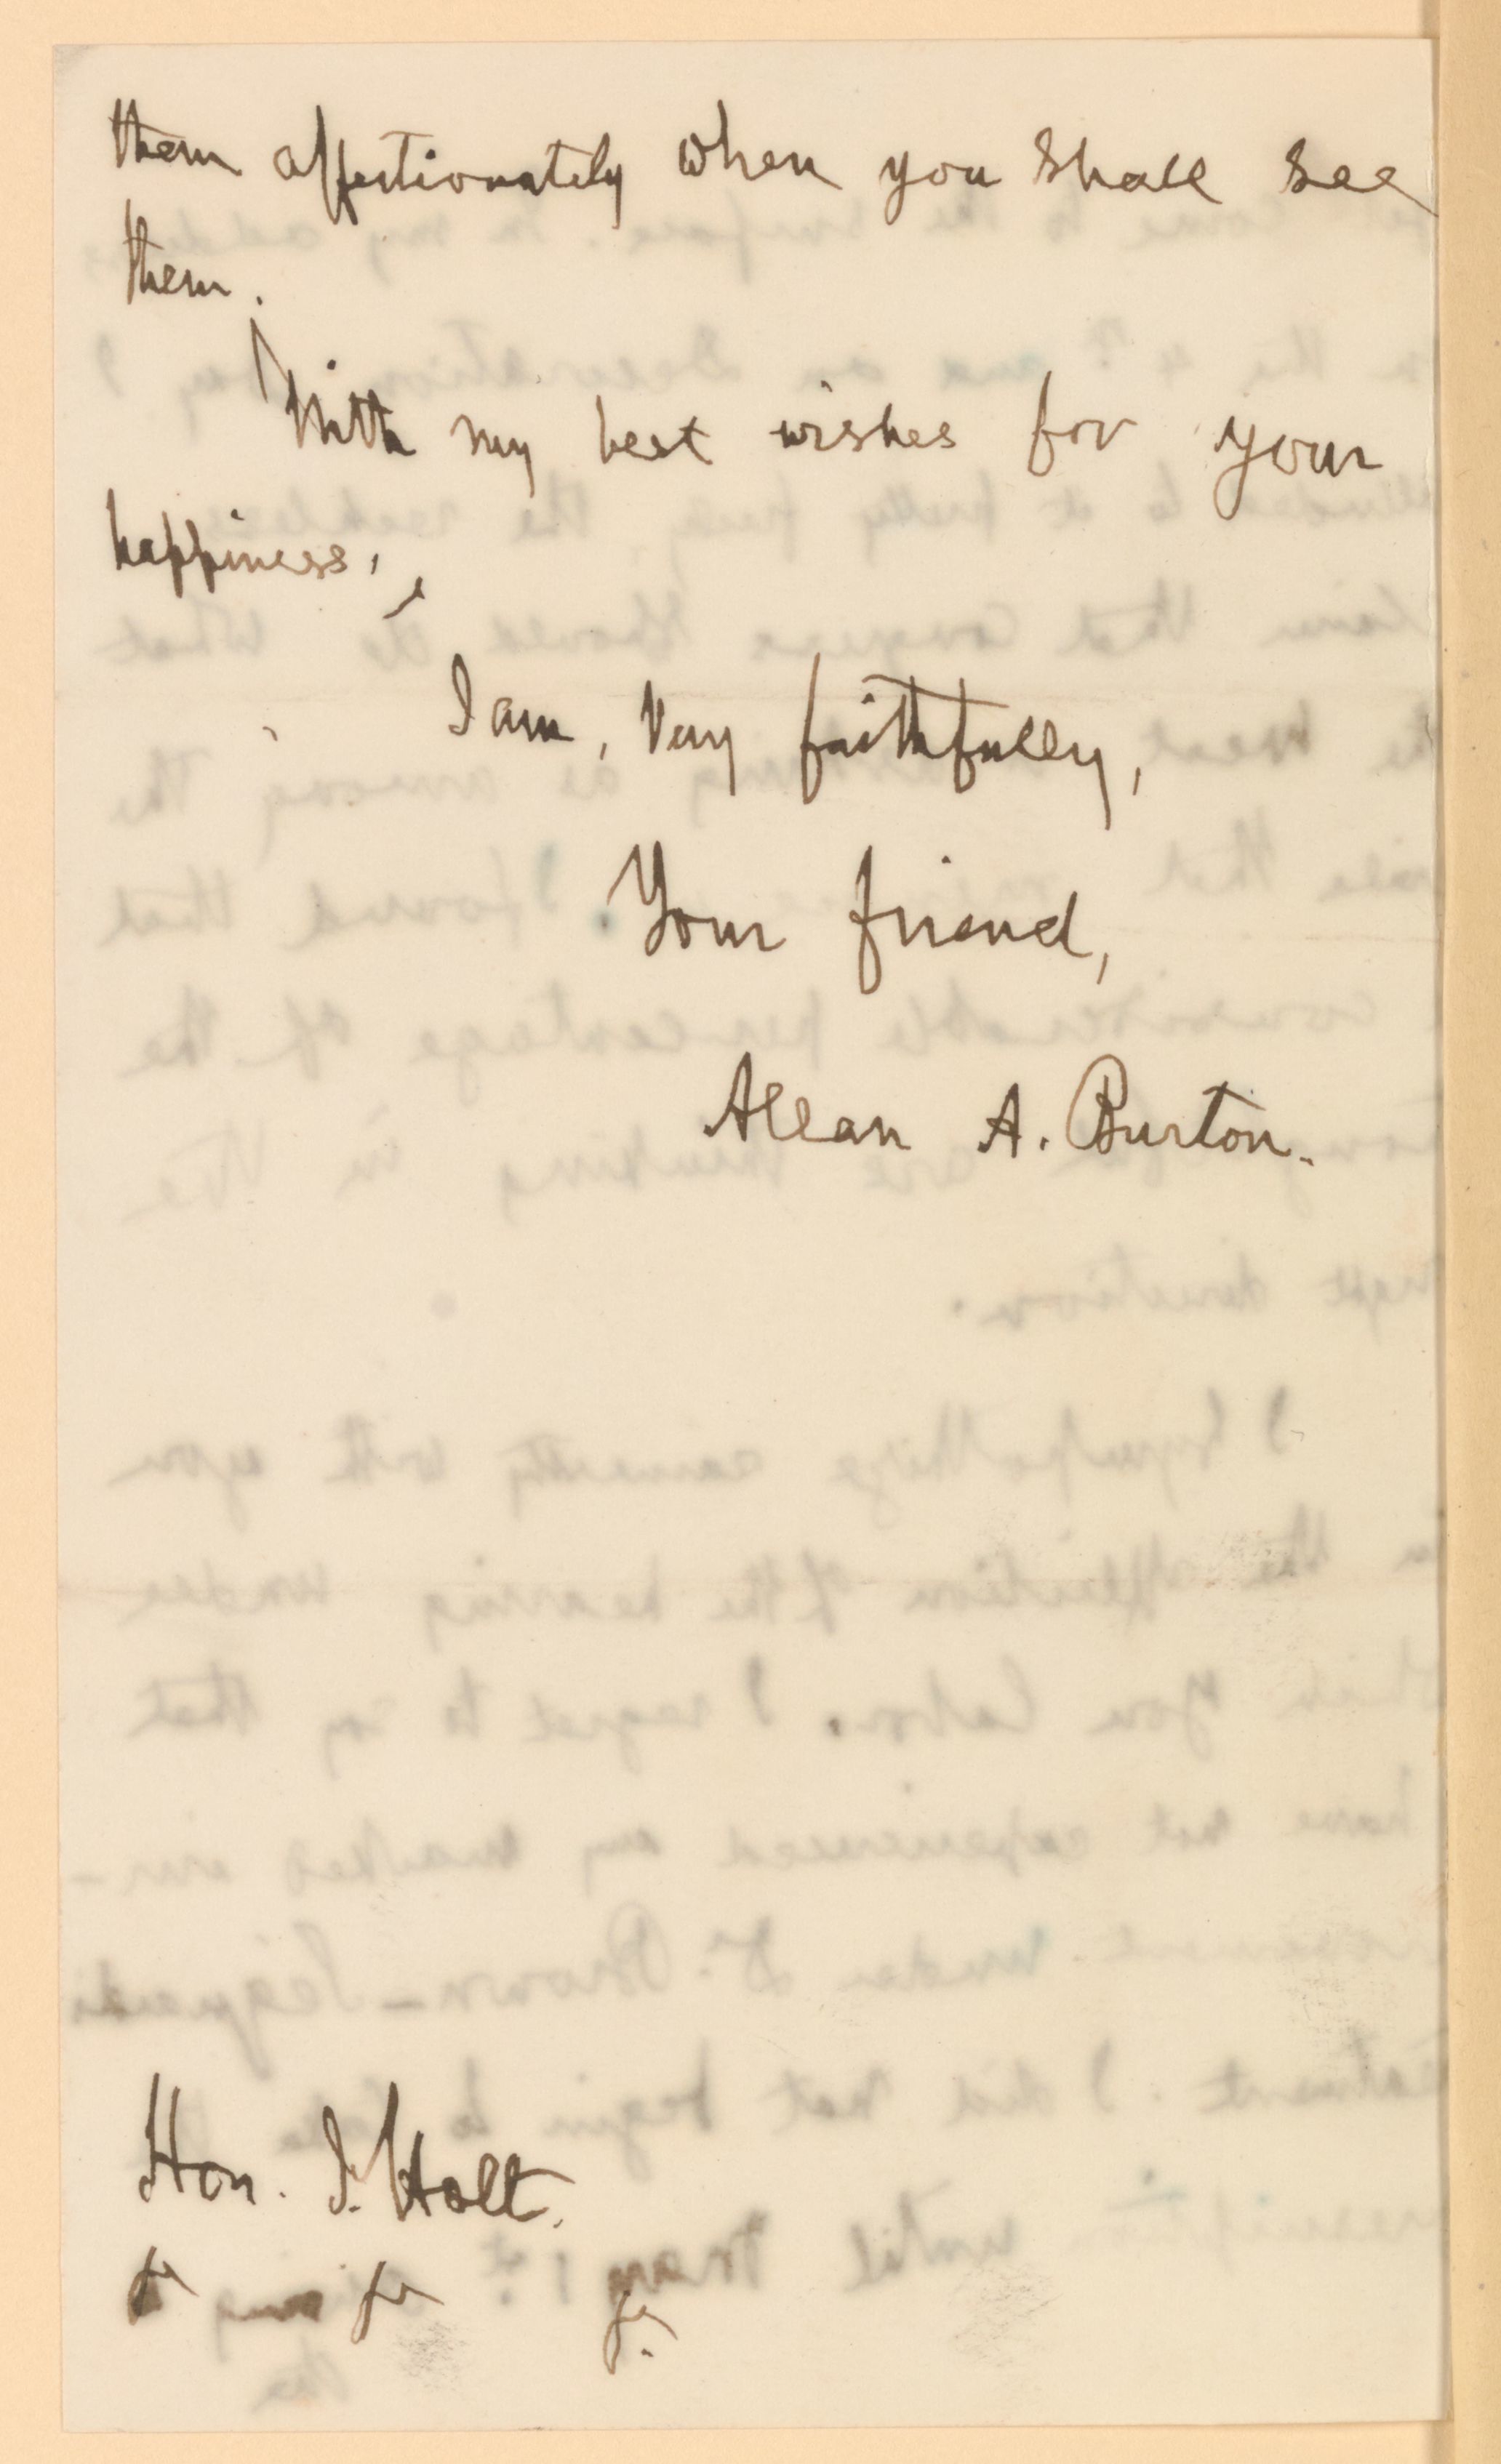 them affectionately when you shall see
them.
With my best wishes for your
happiness,
I am, Very faithfully,
Your friend,
Allan A. Burton.
Hon. J. Holt.
&c &c &c.